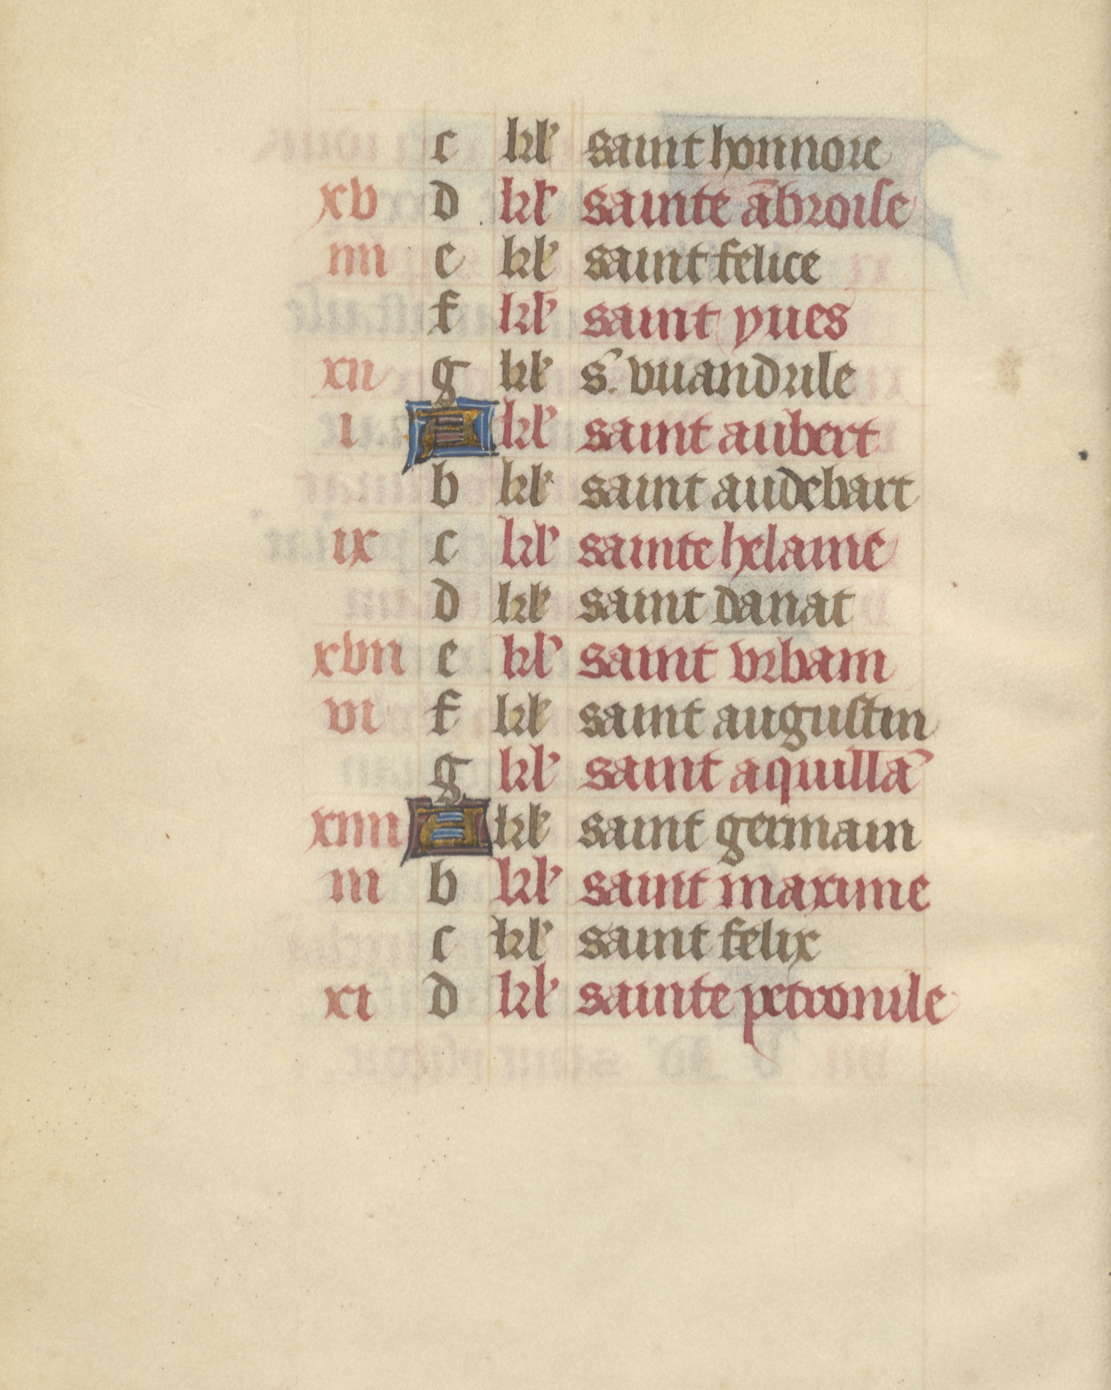 c kl' saint honnore
xv d kl' sainte ābroise
iiii e kl' saint felice
f kl' saint yues
xii g kl' s'. vuandrile
i A kl' saint aubert
b kl' saint audebart
ix c kl' sainte helaine
d kl' saint danat
xvii e kl' saint vrbain
vi f kl' saint augustin
g kl' saint aquillā
xiiii A kl' saint germain
iii b kl' saint maxime
c kl' saint felix
xi d kl' sainte petronile